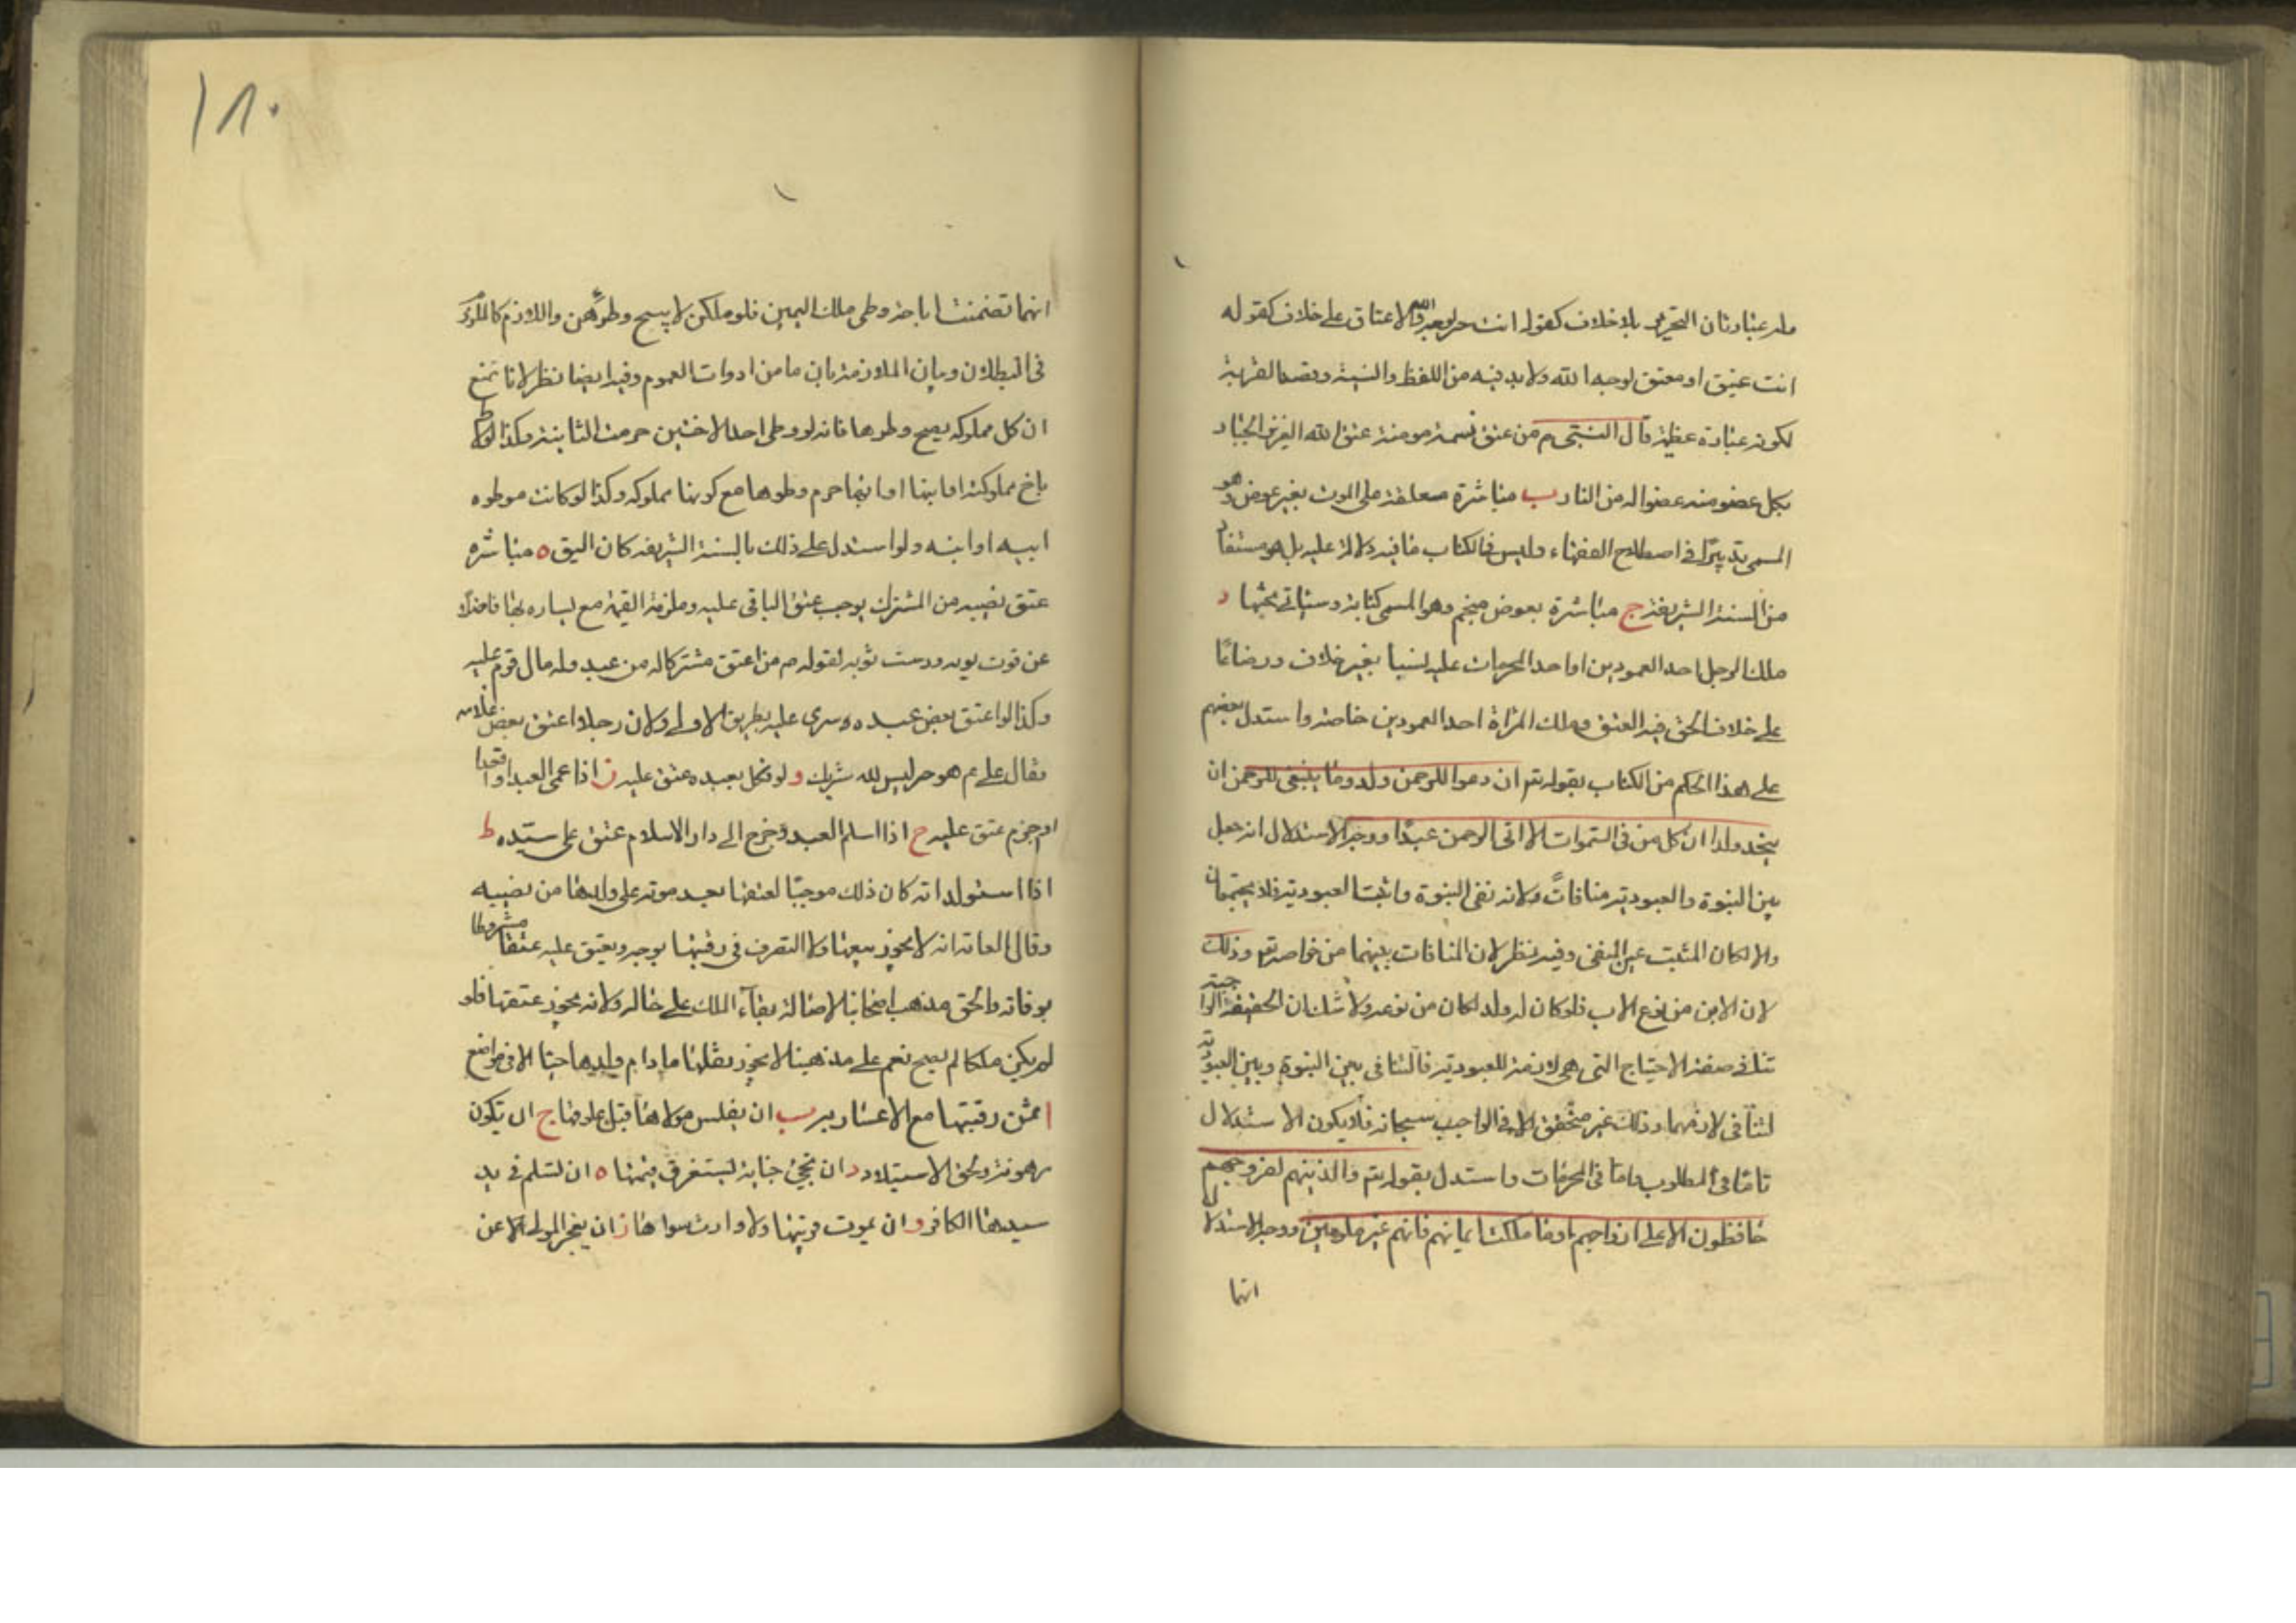 وله عبارتان التحرير بلا خلاف كقوله انت حر لوجه الله والاعتاق على خلاف كقوله
انت عتيق او معتق لوجه الله ولا بد فيه من اللفظ والنية وقصد القربة
لكونه عبادة عظيمة قال النبي م من عتق نسمة مومنة عتق الله العزيز الجبار
بكل عضو منه عضوا له من النار ب مباشرة معلقة على الموت بغير عوض وهو
المسمى تدبيرا في اصطلاح الفقهاء وليس في الكتاب ما فيه دلالة عليه بل هو مستفاد
من السنة الشريفة ج مباشرة بعوض منجم وهو المسمى كتابة وسياتي بحثها د
ملك الرجل احد العمودين او احد المحرمات عليه نسبا بغير خلاف ورضاعا
على خلاف الحق فيه العتق وملك المراة احد العمودين خاصة واستدل بعضهم
على هذا الحكم من الكتاب بقوله تع ان دعوا للرحمن ولدا وما ينبغي للرحمن ان
يتخذ ولدا ان كل من في السموات الا اتى الرحمن عبدا ووجه الاستدلال انه جعل
بين البنوة والعبودية منافاتً ولانه نفى البنوة واثبت العبودية فلا يجتمعان
والا لكان المثبت عين المنفى وفيه نظر لان المنافات بينهما من خواصه تع وذلك
لان الابن من نوع الاب فلو كان له ولد لكان من نوعه ولا شك ان الحقيقة الواجبية
تنافي صفة الاحتياج التى هى لازمة للعبودية فالتنافى بين البنوة وبين العبودية
لتنافى لازمهما وذلك غير متحقق الا في الواجب سبحانه فلا يكون الاستدلال
تاما في المطلوب واما في المحرمات واستدل بقوله تع والذينهم لفروجهم
حافظون الا على ازواجهم او ما ملكت ايمانهم فانهم غير ملومين ووجه الاستدلال
انها
١٨٠
انها تضمنت اباحة وطى ملك اليمين فلو ملكن لا يسح وطؤهن واللازم كالملزوم
في البطلان وبيان الملازمة بان ما من ادوات العموم وفيه ايضا نظر لانا نمنع
ان كل مملوكه يصح وطوها فانه لو وطى احد الاختين حرمت الثانية وكذا لو وطى
باخ مملوكته او ابنها او ابيها حرم وطوها مع كونها مملوكه وكذا لو كانت موطوه
ابيه او ابنه ولو استدل على ذلك بالسنة الشريفه كان اليق ه مباشره
عتق نصيبه من المشترك يوجب عتق الباقى عليه وملزمة القيمة مع يساره بها فاضلا
عن قوت يومه ودست ثوبه لقوله م من اعتق مشتركا له من عبد وله مال قوم عليه
وكذا لو اعتق بعض عبده سرى عليه بطريق الاولى ولان رجلا اعتق بعض غلامه
فقال على م هو حر ليس لله شريك و لو نكل بعبده عتق عليه ز اذا عمى العبد او اقعد
او جذم عتق عليه ح اذا اسلم العبد وخرج الى دار الاسلام عتق على سيده ط
اذا استولد امته كان ذلك موجبا لعتقها بعد موته على ولدها من نصيبه
وقال العامة انه لا يجوز بيعها ولا التصرف في رقبتها بوجه ويعتق عليه عتقا مشروطا
بوفاته والحق مذهب اصحابنا لاصالة بقاء الملك على حاله ولانه يجوز عتقها فلو
لم يكن ملكا لم يصح نعم على مذهبنا لا يجوز نقلها ما دام ولدها حيا الا في مواضع
ا ثمن رقبتها مع الاعسار به ب ان يفلس مولاها قبل علوقها ج ان يكون
مرهونة ولحق الاستيلاد د ان تجنى جناية تستغرق قيمتها ه ان تسلم في يد
سيدها الكافر و ان يموت قريبها ولا وارث سواها ز ان يعجز المولى الا عن